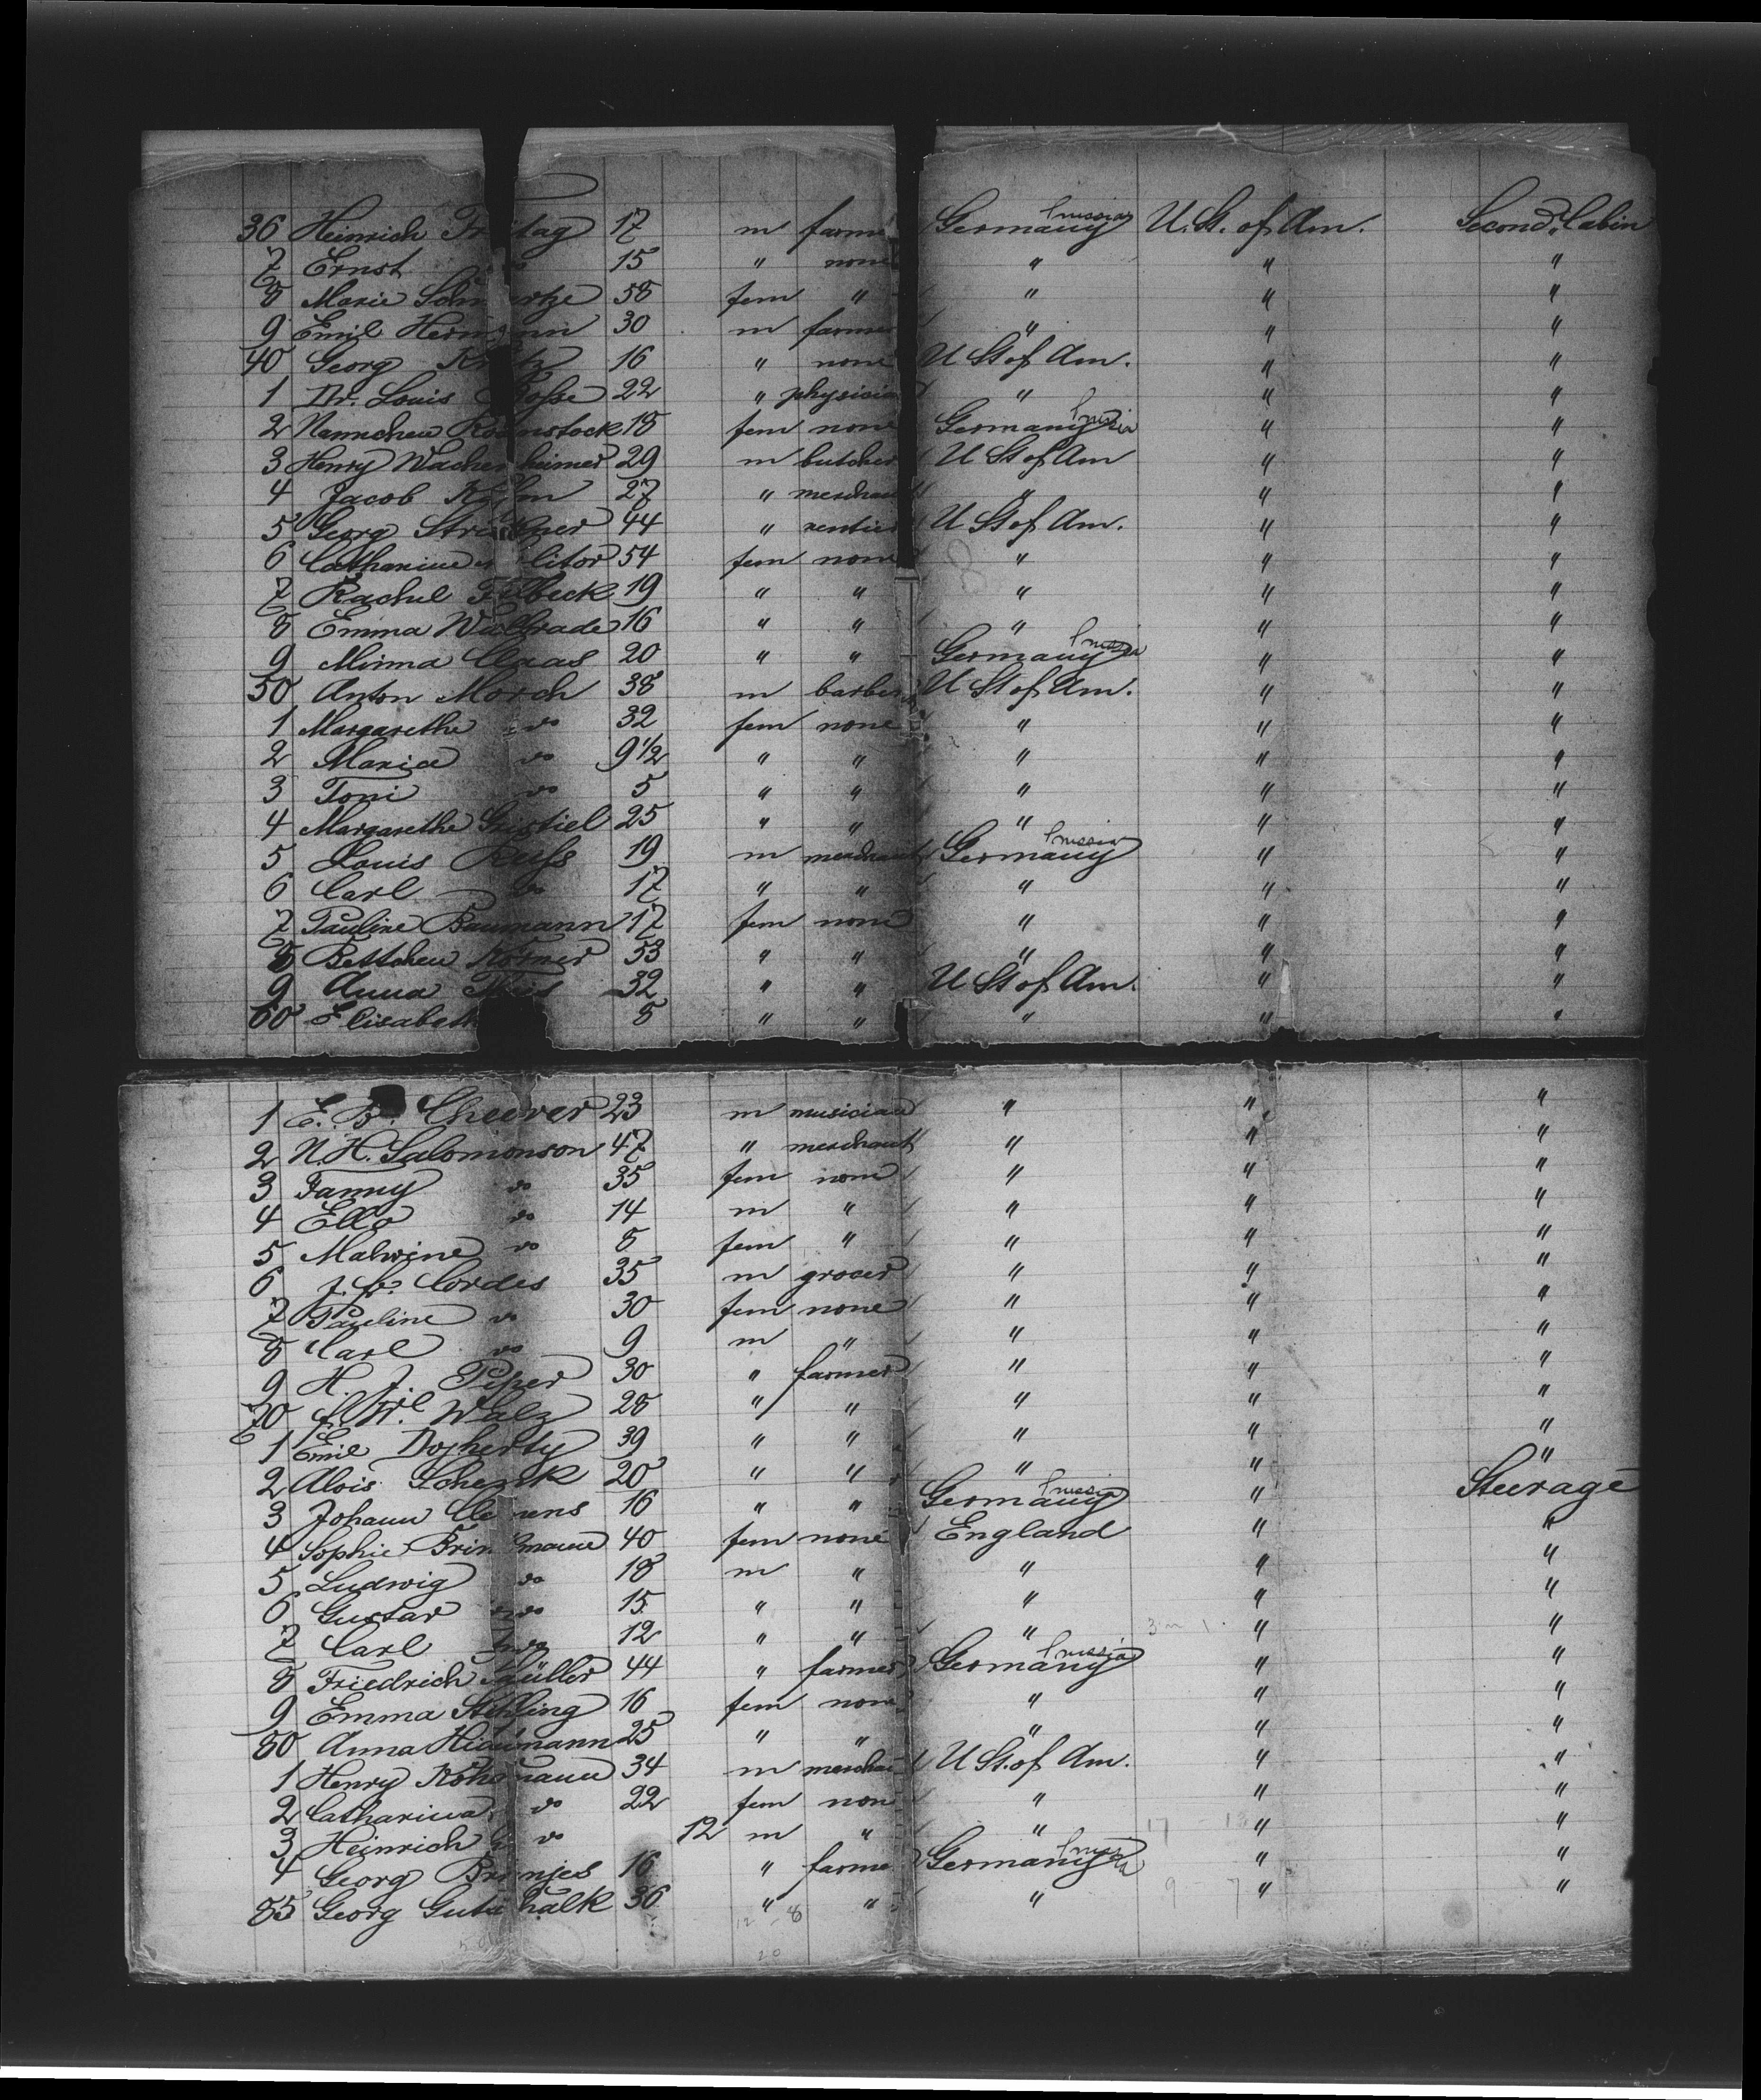 36 Heinrich Fr tag 17 m farme Germany Prussia U. St. of Am. Second Cabin
7 Ernst do 15 " none " " "
8 Marie Sch artze 58 fem " " " "
9 Emil Herm nn 30 m farmer " " "
40 Georg K tz 16 " none U St of Am. " "
1 Dr. Louis osse 22 " physicia " " "
2 Nannchen Ro nstock 18 fem none Germany Prussia " "
3 Henry Wachen heimer 29 m butcher U St of Am " "
4 Jacob K hn 27 " merchant " " "
5 Georg Stri er 44 " rentier U St of Am. " "
6 Catharine litor 54 fem none " " "
7 Rachel F lbeck 19 " " " " "
8 Emma Wallrade 16 " " " " "
9 Minna Claas 20 " " Germany Prussia " "
50 Anton Morch 38 m barber U St of Am. " "
1 Margarethe do 32 fem none " " "
2 Maria do 9 1/2 " " " " "
3 Toni do 5 " " " " "
4 Margarethe Gristiel 25 " " " " "
5 Louis Reiss 19 m merchant Germany Prussia " "
6 Carl do 17 " " " " "
7 Pauline Baumann 17 fem none " " "
8 Bettchen Körner 53 " " " " "
9 Anna Theis 32 " " U St of Am. " "
60 Elisabeth 8 " " " " "
1 E. B. Cheever 23 m musician " " "
2 N. H. Salomonson 47 " merchant " " "
3 Fanny do 35 fem none " " "
4 Ello do 14 m " " " "
5 Malwine do 8 fem " " " "
6 J. Cordes 35 m grocer " " "
7 Pauline do 30 fem none " " "
8 Carl do 9 m " " " "
9 H. J. Peper 30 " farmer " " "
70 Walz 28 " " " " "
1 Emil Dogherty 39 " " " " "
2 Alois Schenk 20 " " " " "
3 Johann Cle ens 16 " " Germany Prussia " Steerage
4 Sophie Brin mann 40 fem none England " "
5 Ludwig do 18 m " " " "
6 Gustav do 15 " " " " "
7 Carl do 12 " " " " "
8 Friedrich Müller 44 " farmer Germany Prussia " "
9 Emma Stehling 16 fem none " " "
80 Anna Hi mann 25 " " " " "
1 Henry Koh mann 34 m merchan U St. of Am. " "
2 Catharina do 22 fem non " " "
3 Heinrich do 12 m " " " "
4 Georg Br njes 16 " farme Germany Prussia " "
85 Georg Guts halk 36 " " " " "